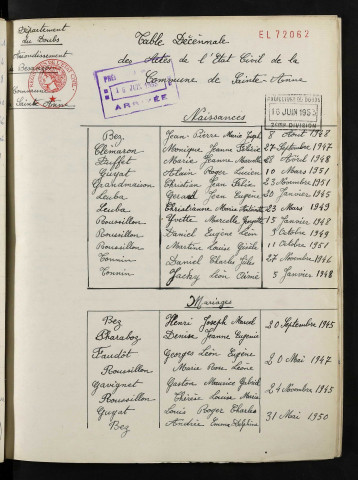 Département
du Doubs
Arrondissement
Besançon
Commune
Sainte Anne
Table Décennale
des Actes de l'Etat Civil de la
Commune de Sainte-Anne
EL 72062
ARRIVÉE
PREFECTURE DU DOUBS
16 JUIN 1953
2ème DIVISION
Naissances
Bez Jean Pierre Marie Joseph 8 Août 1948
Clémaron Monique Jeanne Félicie 27 Septembre 1947
Marie Jeanne Marcelle 28 Avril 1948
Guyat Alain Roger Lucien 10 Mars 1951
Grandmaison Christian Jean Félix 23 Novembre 1951
Leuba Gérard Jean Eugène 20 Janvier 1945
Leuba Christianne Marie 23 Mars 1949
Roussillon Yvette Marcelle 15 Janvier 1948
Roussillon Daniel Eugène Léon 5 Octobre 1949
Roussillon Martine Louise Gisèle 11 Octobre 1951
Tonnin Daniel Charles Jules 27 Novembre 1946
Tonnin Jacky Léon Aimé 5 Janvier 1948
Mariages
Bez Henri Joseph Marcel 20 Septembre 1945
Charaboz Denise Jeanne Eugénie
Faudot Georges Léon Eugène 20 Mai 1947
Roussillon Marie Rose Léonie
Gavignet Gaston Maurice Gabriel 24 Novembre 1945
Roussillon Thérèse Louise Maria
Guyat Louis Roger Charles 31 Mai 1950
Bez Andrée Emma Delphine